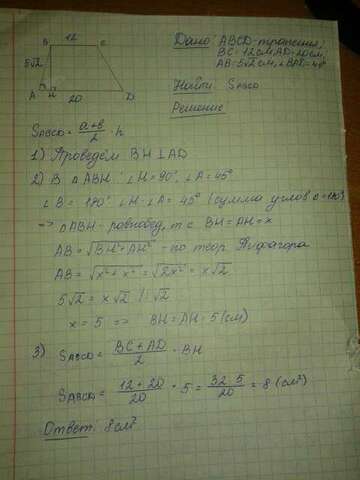 12
B C
5√2
A H 20 D
Дано: ABCD-трапеция,
BC=12см, AD=20см,
AB=5√2см, ∠BAD=45°
Найти: SABCD
Решение
SABCD = a+b/2 · h
1) Проведём BH⊥AD
2) В △ABH: ∠H=90°, ∠A=45°
∠B = 180°-∠H-∠A = 45° (сумма углов △=180°)
=> △ABH-равнобед, т.е BH=AH=x
AB=√BH²+AH² - по теор. Пифагора
AB=√x²+x² = √2x² = x√2
5√2 = x√2 |:√2
x=5 => BH=AH=5(см)
3) SABCD = BC+AD/2 · BH
SABCD = 12+20/20 · 5 = 32·5/20 = 8 (см²)
Ответ: 8см²